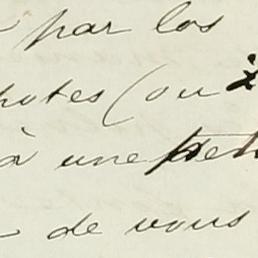 par los
notes (ou
à une
de vous